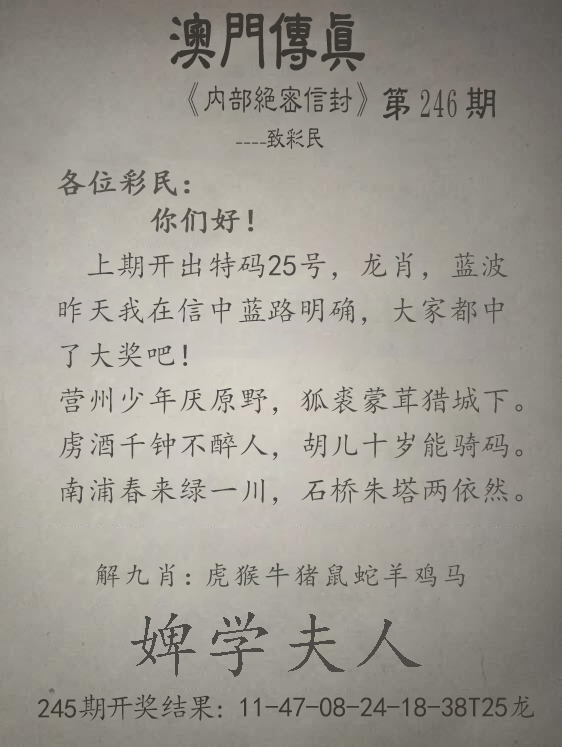 澳門傳真
《内部絕密信封》第246期
----致彩民
各位彩民：
你们好！
上期开出特码25号，龙肖，蓝波
昨天我在信中蓝路明确，大家都中
了大奖吧！
营州少年厌原野，狐裘蒙茸猎城下。
虏酒千钟不醉人，胡儿十岁能骑码。
南浦春来绿一川，石桥朱塔两依然。
解九肖：虎猴牛猪鼠蛇羊鸡马
婢学夫人
245期开奖结果：11-47-08-24-18-38T25龙